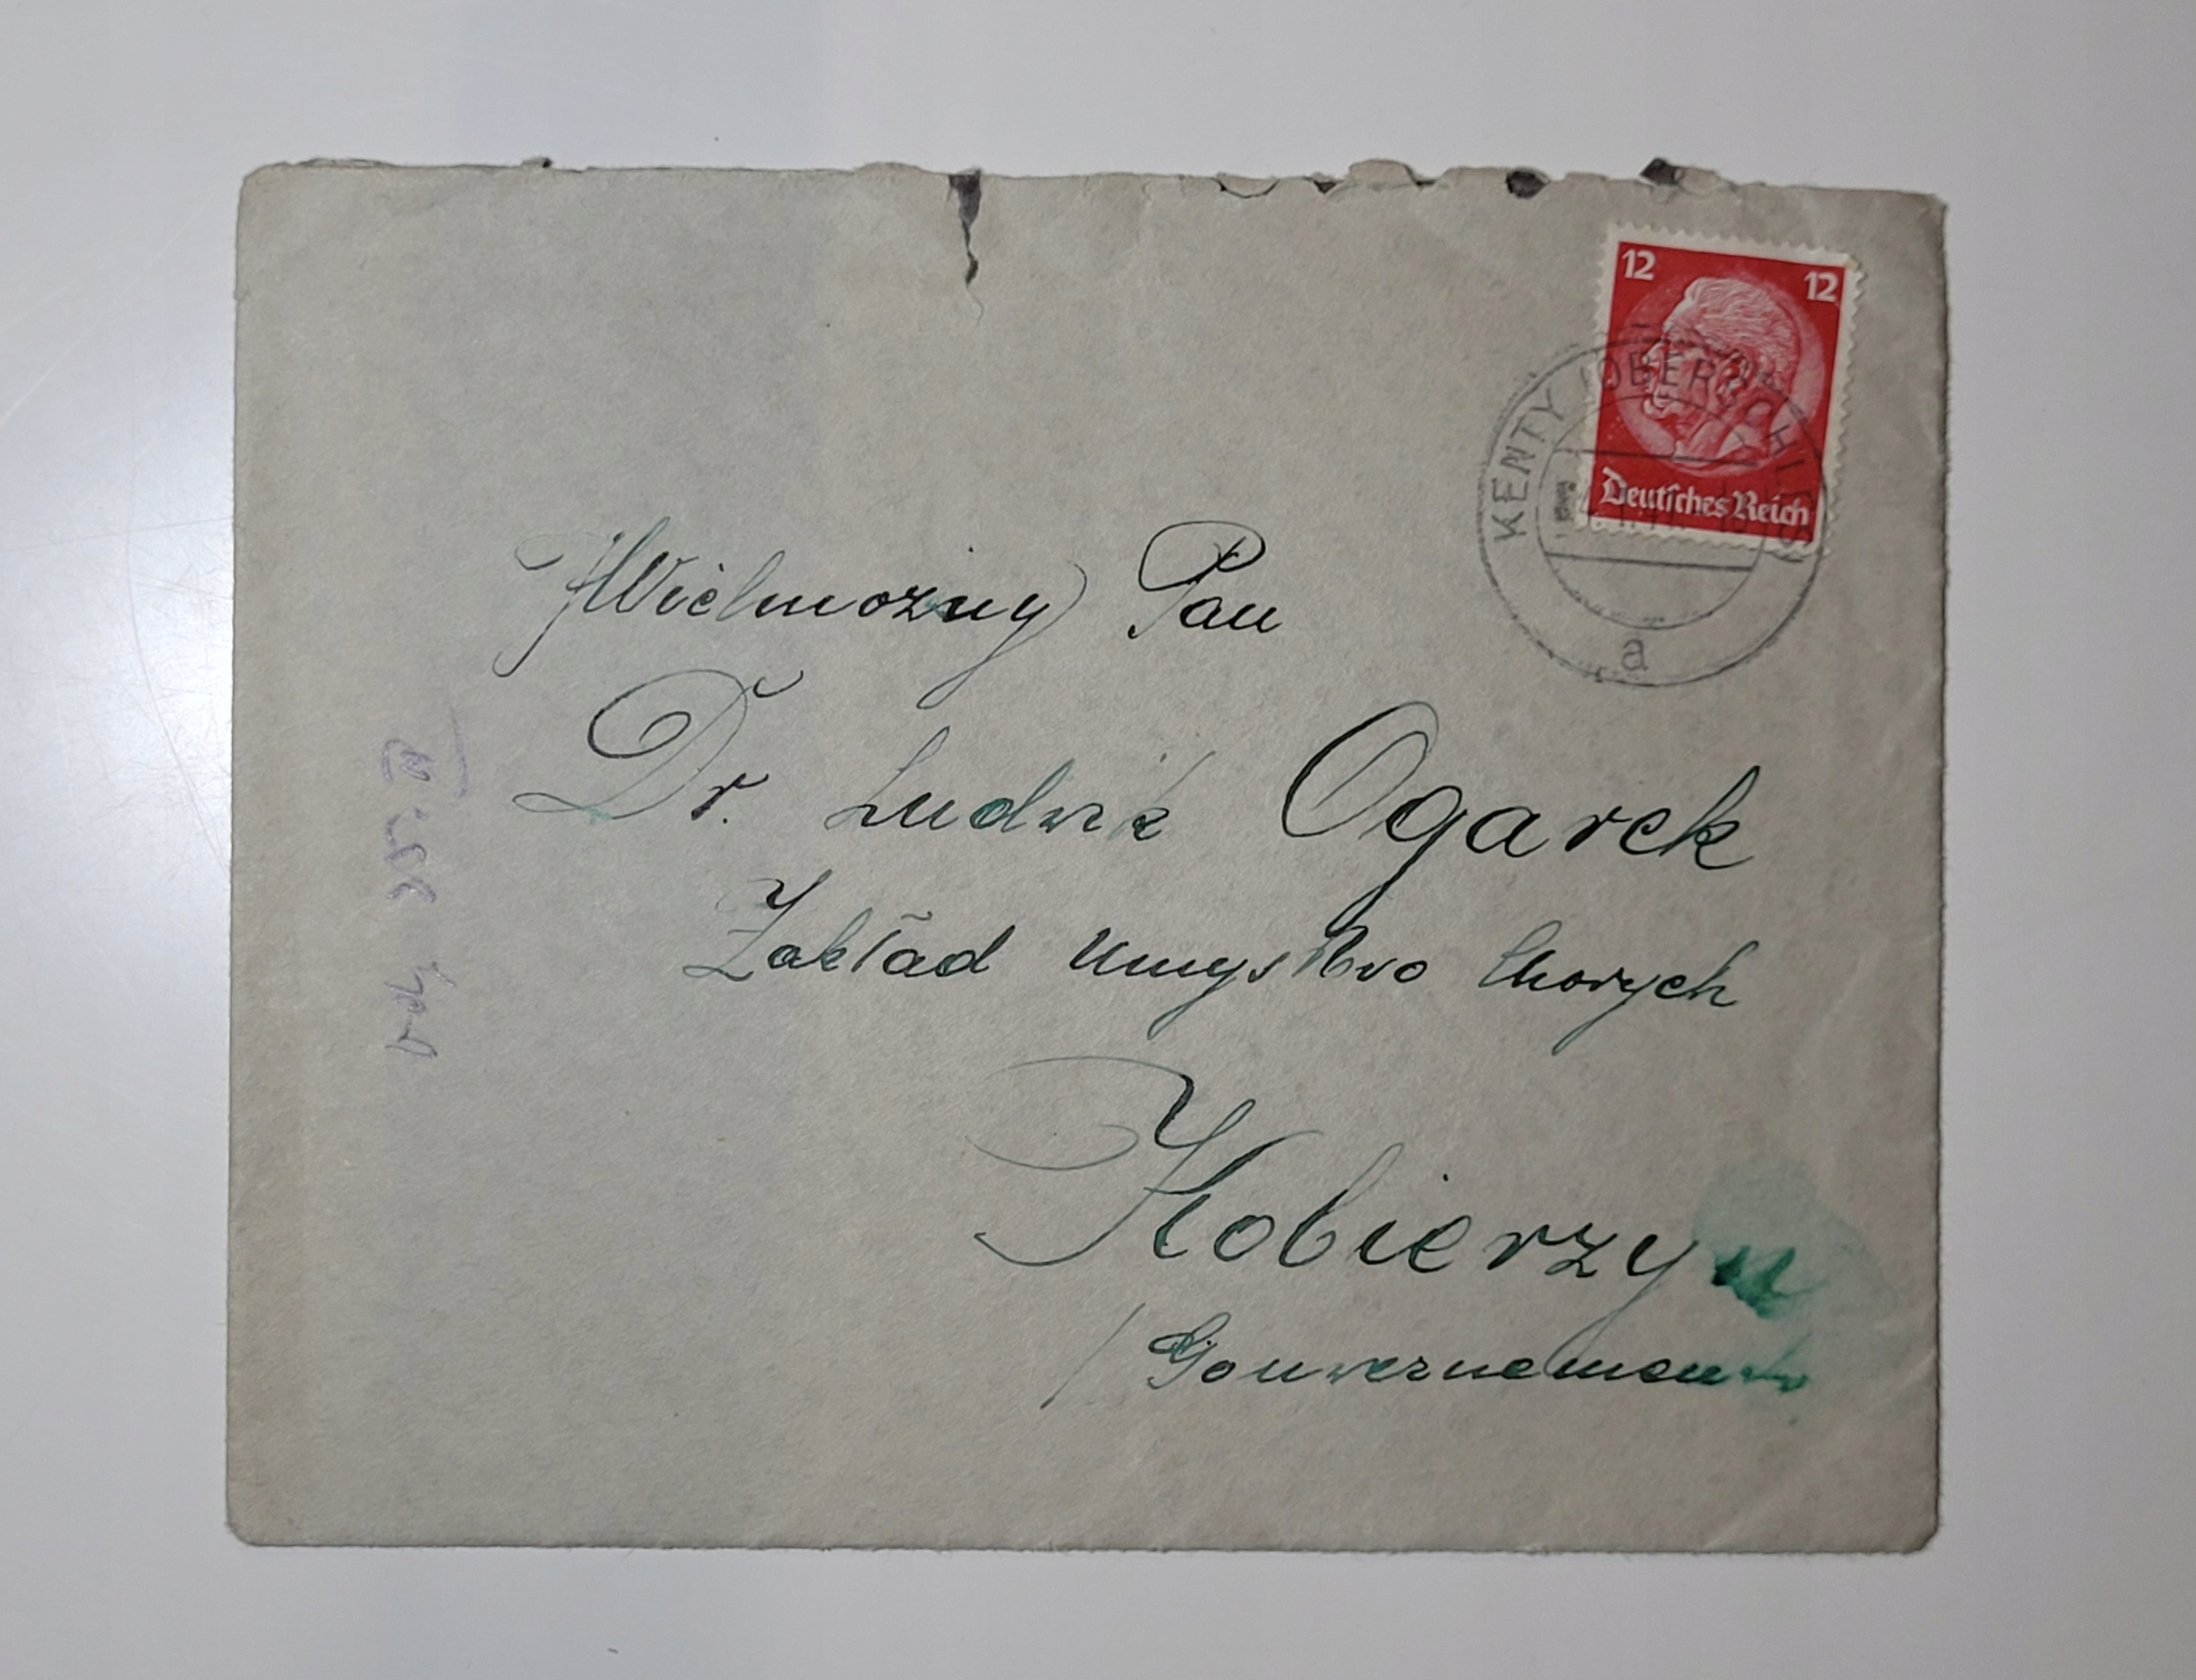 12 12
Deutsches Reich
KENTY (OBERSCHLES)
a
Wielmożny Pan
Dr. Ludwik Ogarek
Zakład Umysłowo Chorych
Kobierzyn
/ Gouvernement